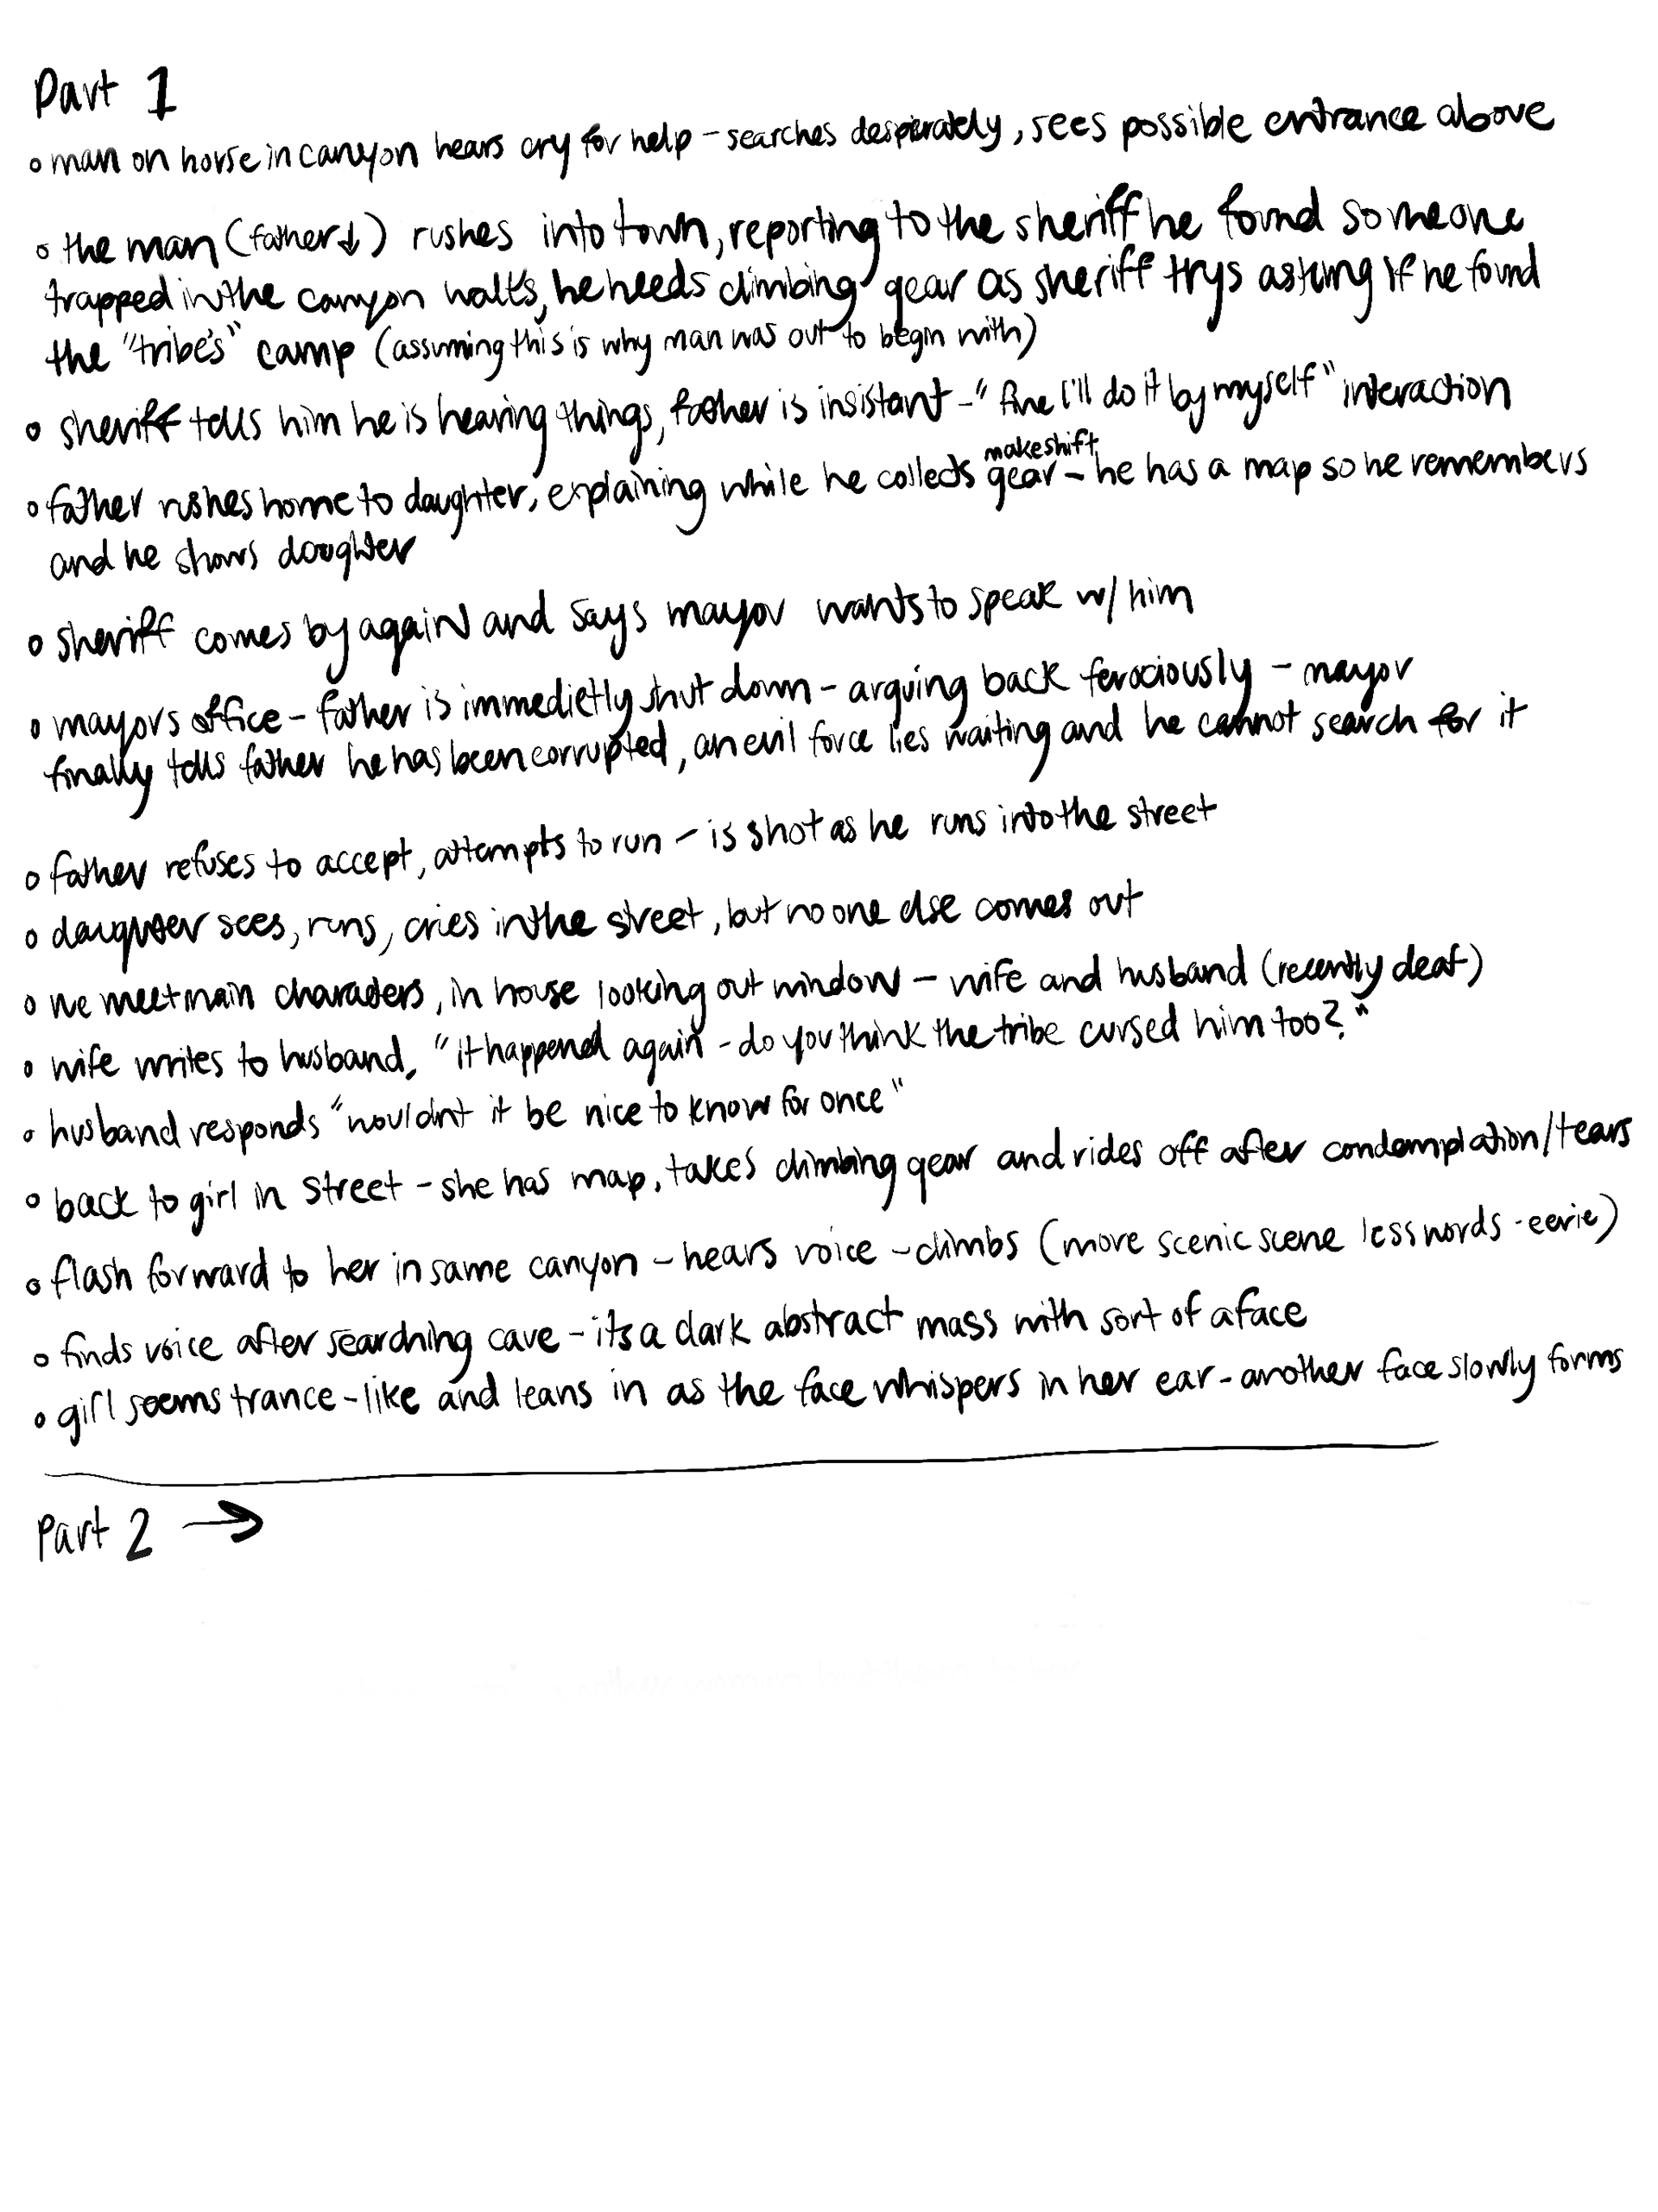 Part 1
o man on horse in canyon hears cry for help - searches desperately, sees possible entrance above
o the man (father↓) rushes into town, reporting to the sheriff he found someone
trapped in the canyon walls, he needs climbing gear as sheriff trys asking if he found
the "tribe's" camp (assuming this is why man was out to begin with)
o sheriff tells him he is hearing things, father is insistant - "fine I'll do it by myself" interaction
makeshift
o father rushes home to daughter, explaining while he collects gear - he has a map so he remembers
and he shows daughter
o sheriff comes by again and says mayor wants to speak w/ him
o mayors office - father is immedietly shut down - arguing back ferociously - mayor
finally tells father he has been corrupted, an evil force lies waiting and he cannot search for it
o father refuses to accept, attempts to run - is shot as he runs into the street
o daughter sees, runs, cries in the street, but no one else comes out
o we meet main characters, in house looking out window - wife and husband (recently deaf)
o wife writes to husband, "it happened again - do you think the tribe cursed him too?"
o husband responds "wouldnt it be nice to know for once"
o back to girl in street - she has map, takes climbing gear and rides off after condemplation/tears
o flash forward to her in same canyon - hears voice - climbs (more scenic scene less words - eerie)
o finds voice after searching cave - its a dark abstract mass with sort of a face
o girl seems trance-like and leans in as the face whispers in her ear - another face slowly forms
Part 2 →